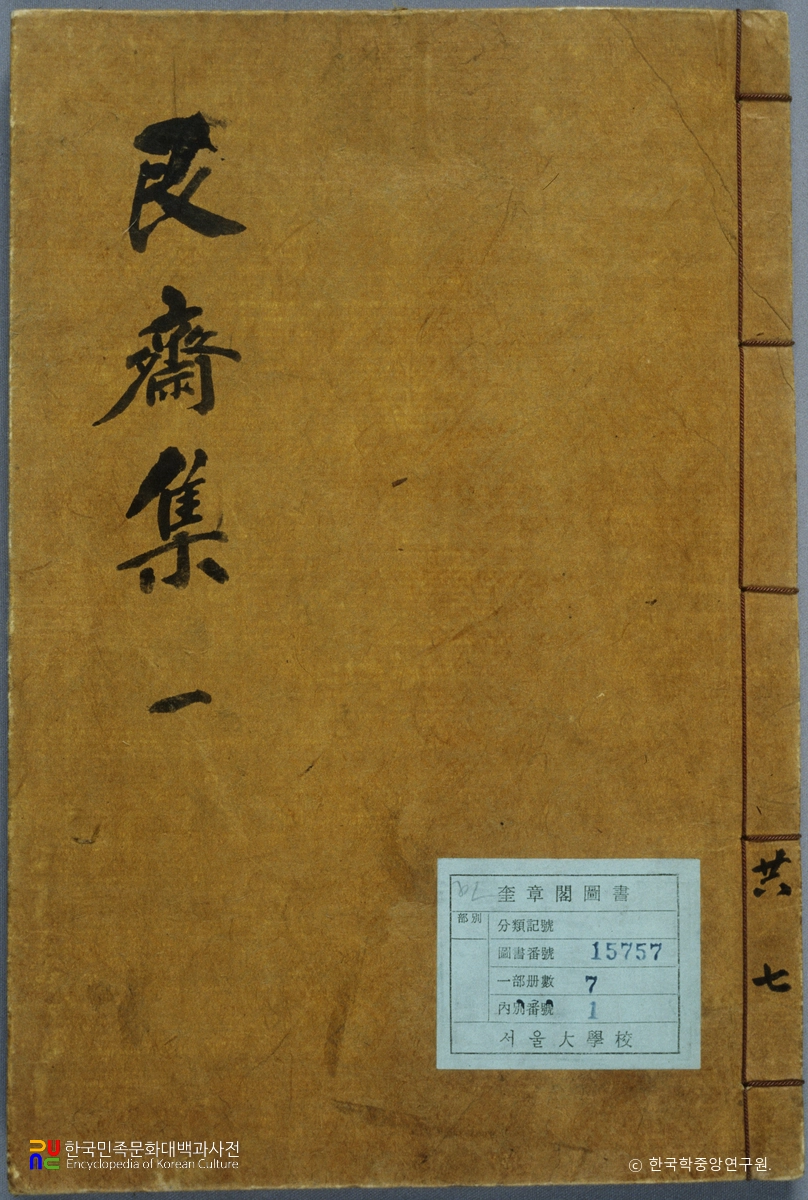 艮齋集 一
共七
奎章閣圖書
部別
分類記號
圖書番號 15757
一部册數 7
內別番號 1
서울大學校
한국민족문화대백과사전
Encyclopedia of Korean Culture
© 한국학중앙연구원.